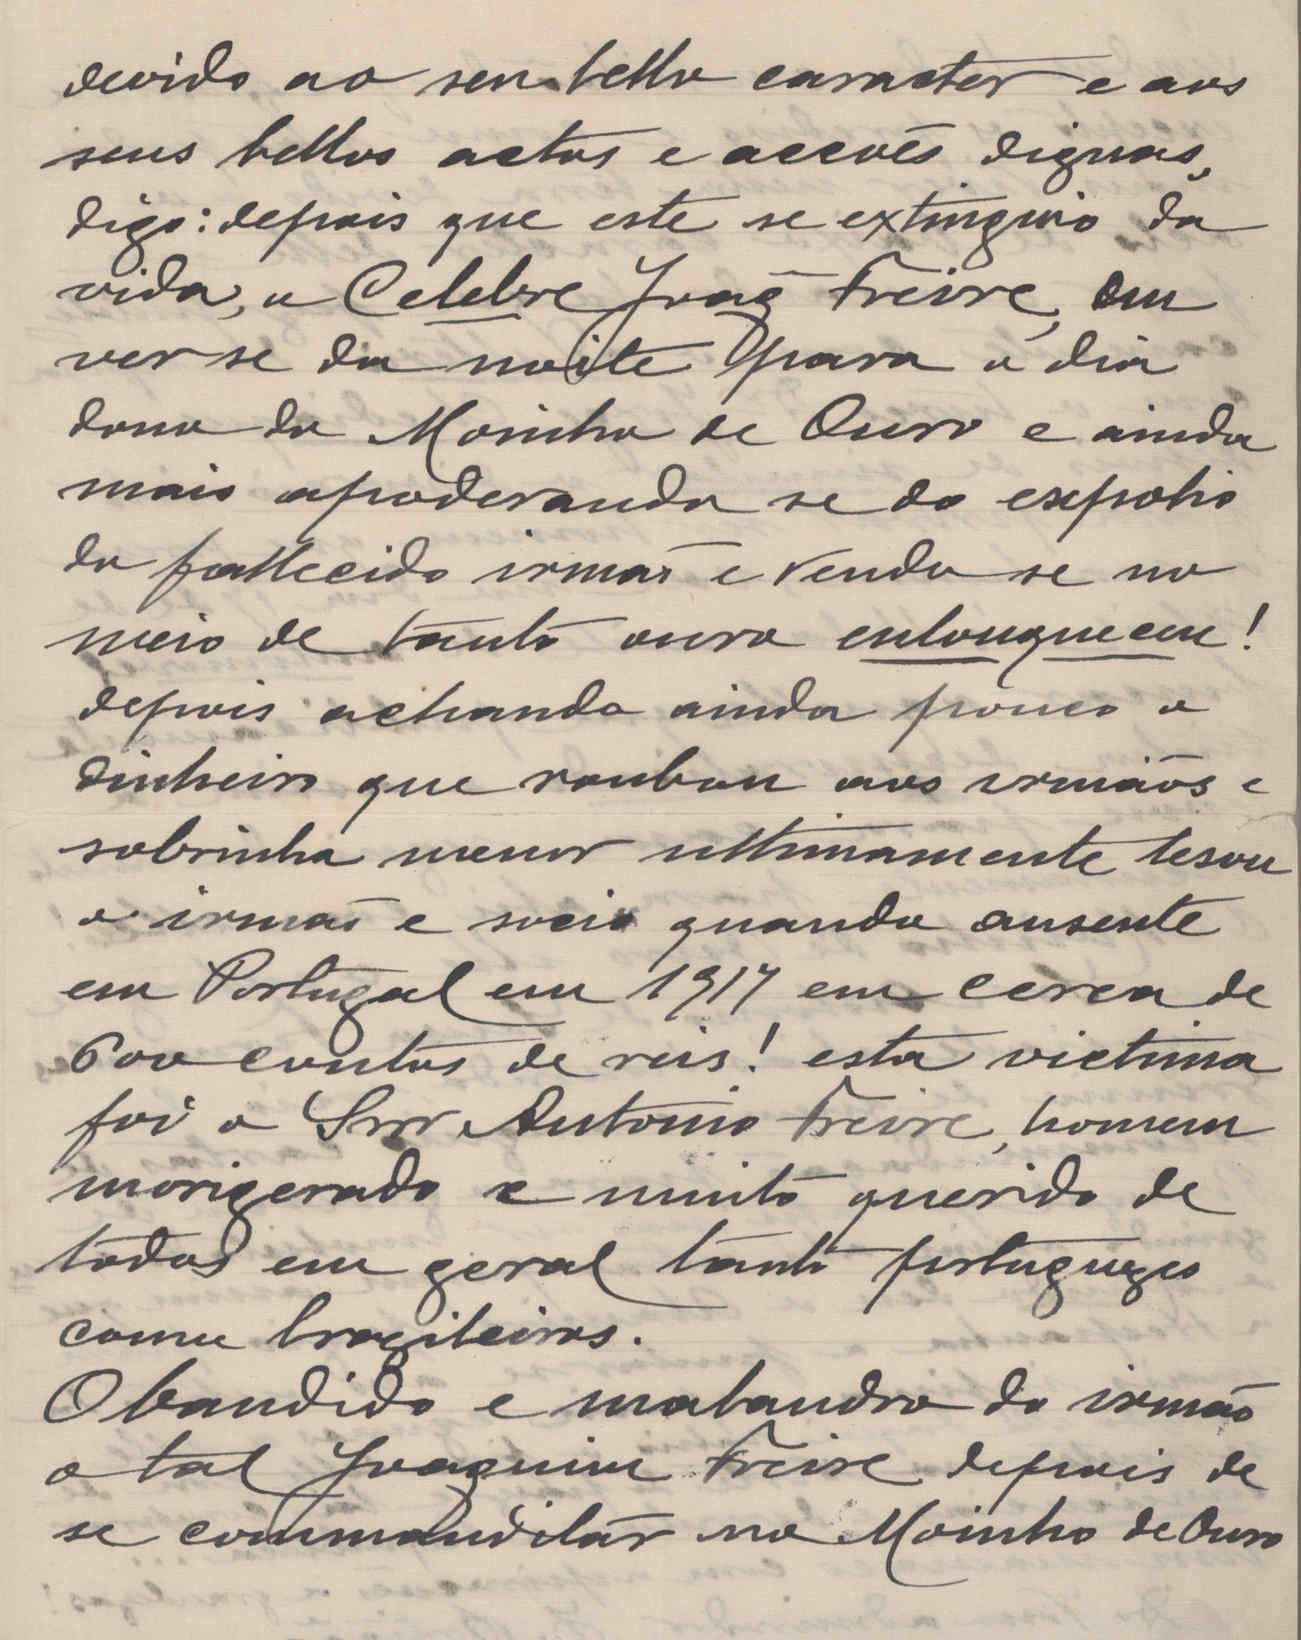 devido ao seu bello caracter e aos
seus bellos actos e accoẽs dignas,
digo: depois que este se extinguio da
vida, o Celebre Joaq̃ Freire, em
ver se da noite para o dia
dono do Moinho de Ouro e ainda
mais apoderando se do expolio
do fallecido irmaõ e vendo se no
meio de tanto ouro enlouqueceu!
depois achando ainda pouco o
dinheiro que roubou aos irmãos e
sobrinha menor ultimamente lesou
o irmaõ e socio quando ausente
em Portugal em 1917 em cerca de
600 contos de reis! esta victima
foi o Snr Antonio Freire, homem
morigerado e muito querido de
todos em geral tanto portuguezes
como brazileiros.
O bandido e malandro do irmão
o tal Joaquim Freire depois de
se commanditar no Moinho de Ouro